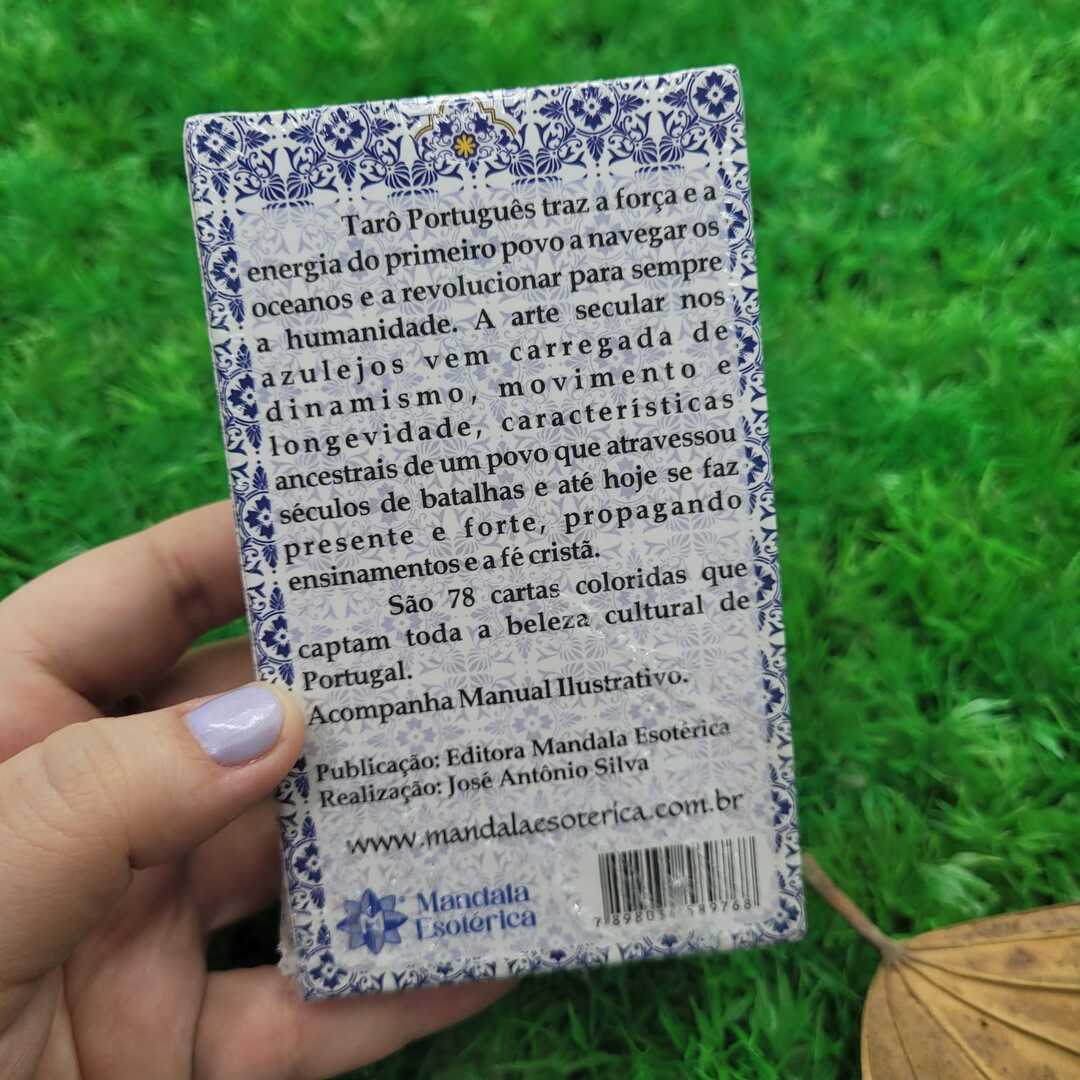 Tarô Português traz a força e a
energia do primeiro povo a navegar os
oceanos e a revolucionar para sempre
a humanidade. A arte secular nos
azulejos vem carregada de
dinamismo, movimento e
longevidade, características
ancestrais de um povo que atravessou
séculos de batalhas e até hoje se faz
presente e forte, propagando
ensinamentos e a fé cristã.
São 78 cartas coloridas que
captam toda a beleza cultural de
Portugal.
Acompanha Manual Ilustrativo.
Publicação: Editora Mandala Esotérica
Realização: José Antônio Silva
www.mandalaesoterica.com.br
Mandala
Esotérica